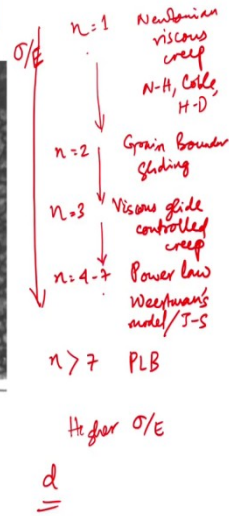 σ/E
n=1 Newtonian
viscous
creep
N-H, Coble,
H-D
n=2 Grain Boundary
Gliding
n=3 Viscous glide
controlled
creep
n=4-7 Power law
Weertman's
model/J-S
n>7 PLB
Higher σ/E
d